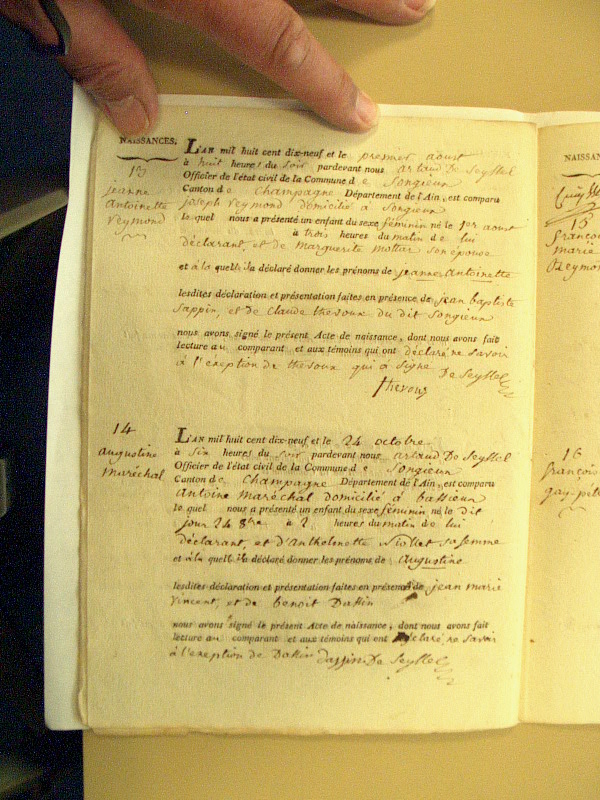 NAISSANCES.
13
jeanne
Antoinette
Veymond
LAN mil huit cent dix-neuf et le premier aoust
à huit heures du soir pardevant nous artaud De Seyssel
Officier de l'état civil de la Commune de Songieux
Canton de Champagne Département de l'Ain, est comparu
joseph Veymond domicilié à Songieux
lequel nous a présenté un enfant du sexe féminin né le 1er aoust
à trois heures du matin de lui
déclarant, et de Marguerite Mottar son épouse
et à laquelle il a déclaré donner les prénoms de jeanne Antoinette
lesdites déclaration et présentation faites en présence de jean baptiste
Sappin, et de Claude thevoux du dit Songieux
nous avons signé le présent Acte de naissance, dont nous avons fait
lecture au comparant et aux témoins qui ont déclaré ne savoir
à l'exeption de thevoux qui a signé De Seyssel
thevoux
14
augustine
maréchal
LAN mil huit cent dix-neuf et le 24 octobre
à six heures du soir pardevant nous artaud De Seyssel
Officier de l'état civil de la Commune de Songieux
Canton de Champagne Département de l'Ain, est comparu
Antoine Maréchal domicilié à bassieux
lequel nous a présenté un enfant du sexe féminin né le dit
jour 24 8bre à 2 heures du matin de lui
déclarant, et d'Anthelmette Niollet sa femme
et à laquelle il a déclaré donner les prénoms de Augustine
lesdites déclaration et présentation faites en présence de jean marie
Vincent, et de benoit Dassin
nous avons signé le présent Acte de naissance, dont nous avons fait
lecture au comparant et aux témoins qui ont déclaré ne savoir
à l'exeption de Dassin De Seyssel
NAISSAN
15
françoi
marie
Veymon
16
françois
gay-pél